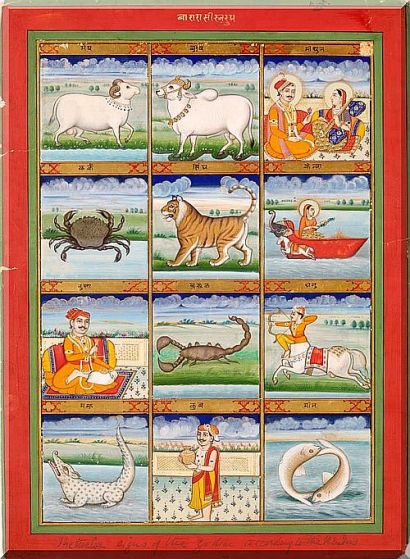 मेष वृष मीथुन
कर्क सिंघ कंन्या
तुला धनु
मकर कुंभ मीन
The twelve signs of the Zodiac according to the Hindus